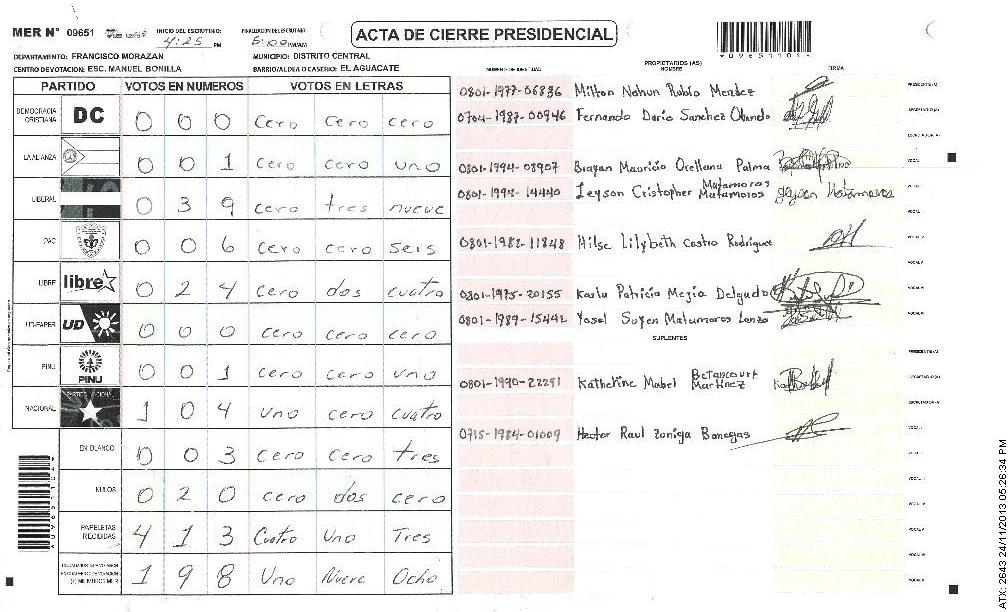 MER N° 09651
INICIO DEL ESCRUTINIO: 4:25 PM
FINALIZACION DEL ESCRUTINIO: 6:00 PM/AM
ACTA DE CIERRE PRESIDENCIAL
*09651104*
DEPARTAMENTO: FRANCISCO MORAZAN
MUNICIPIO: DISTRITO CENTRAL
CENTRO DE VOTACION: ESC. MANUEL BONILLA
BARRIO/ALDEA O CASERIO: EL AGUACATE
PARTIDO VOTOS EN NUMEROS VOTOS EN LETRAS
DEMOCRACIA CRISTIANA DC 0 0 0 cero cero cero
LA ALIANZA 0 0 1 cero cero uno
LIBERAL 0 3 9 cero tres nueve
PAC 0 0 6 cero cero seis
LIBRE libre 0 2 4 cero dos cuatro
UD-FAPER UD 0 0 0 cero cero cero
PINU PINU 0 0 1 cero cero uno
NACIONAL 1 0 4 uno cero cuatro
EN BLANCO 0 0 3 cero cero tres
NULOS 0 2 0 cero dos cero
PAPELETAS RECIBIDAS 4 1 3 Cuatro Uno Tres
1 9 8 Uno Nueve Ocho
NUMERO DE IDENTIDAD
PROPIETARIOS (AS)
NOMBRE
FIRMA
0801-1977-06836 Milton Nahun Rubio Mendez
PRESIDENTE(A)
0704-1987-00946 Fernando Dario Sanchez Obando
SECRETARIO(A)
ESCRUTADOR(A)
0801-1994-08907 Brayan Mauricio Orellana Palma
VOCAL I
Matamoros
0801-1994-14440 Leyson Cristopher Matamoros
Leyson Matamoros
0801-1982-11848 Hilse Lilybeth Castro Rodriguez
0801-1975-20155 Karla Patricia Mejia Delgado
0801-1989-15442 Yosel Suyen Matamoros Lanza
SUPLENTES
PRESIDENTE(A)
Betancourt
0801-1990-22291 Katherine Mabel Martinez
SECRETARIO(A)
ESCRUTADOR(A)
0715-1984-01009 Hector Raul Zuniga Banegas
VOCAL I
ATX: 2643 24/11/2013 05:26:34 PM